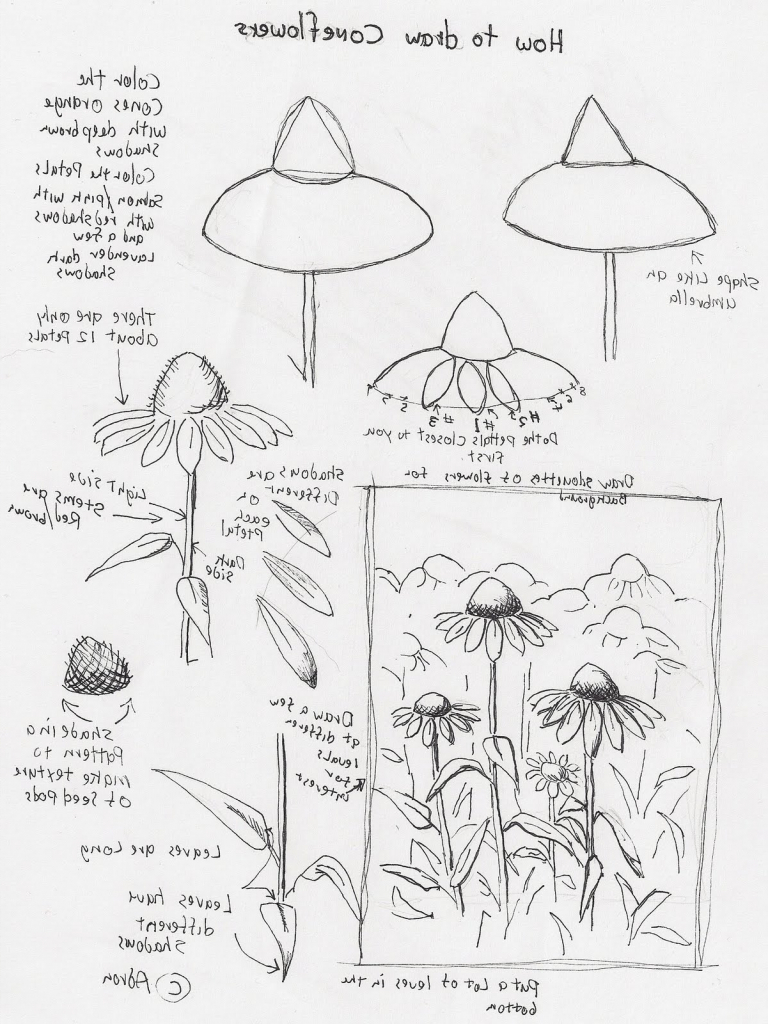 How to draw Coneflowers
Color the
Cones orange
with deep brown
shadows
Color the Petals
Salmon/pink with
with red shadows
and a few
Lavender dark
Shadows
Shape Like an
umbrella
There are only
about 12 Petals
8 6 4 #2 #1 #3 5 7
Do the Pettals Closest to you
First.
Draw silouettes of flowers for
Background
Shadows are
Different
on
each
Ptetal
Light side
Stems are
Red/brown
Dark
side
Draw a few
at differen
levals
for
interest
shade in a
Pattern to
make texture
of Seed Pods
Leaves are Long
Leaves have
different
Shadows
© Adron
Put a Lot of leves in the
bottom